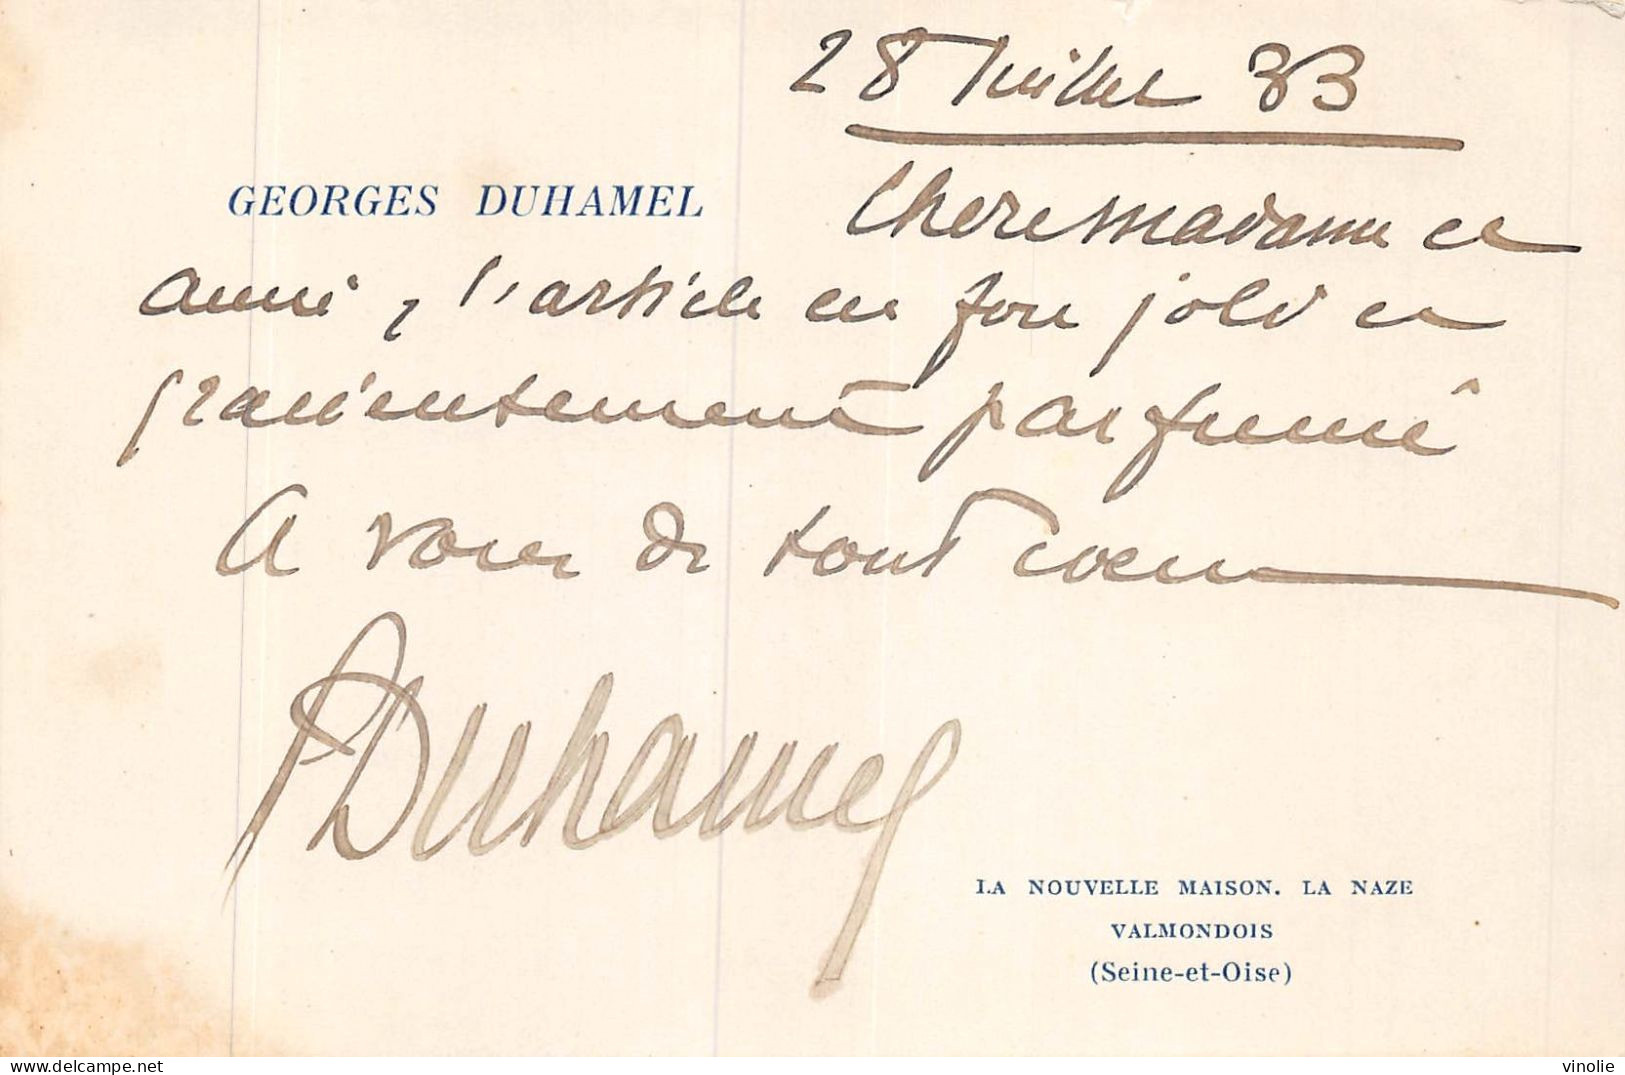 28 Juillet 33
GEORGES DUHAMEL
Chère Madame et
amie, l'article est fort joli et
gracieusement parfumé
A vous de tout cœur
Duhamel
LA NOUVELLE MAISON. LA NAZE
VALMONDOIS
(Seine-et-Oise)
vinolie